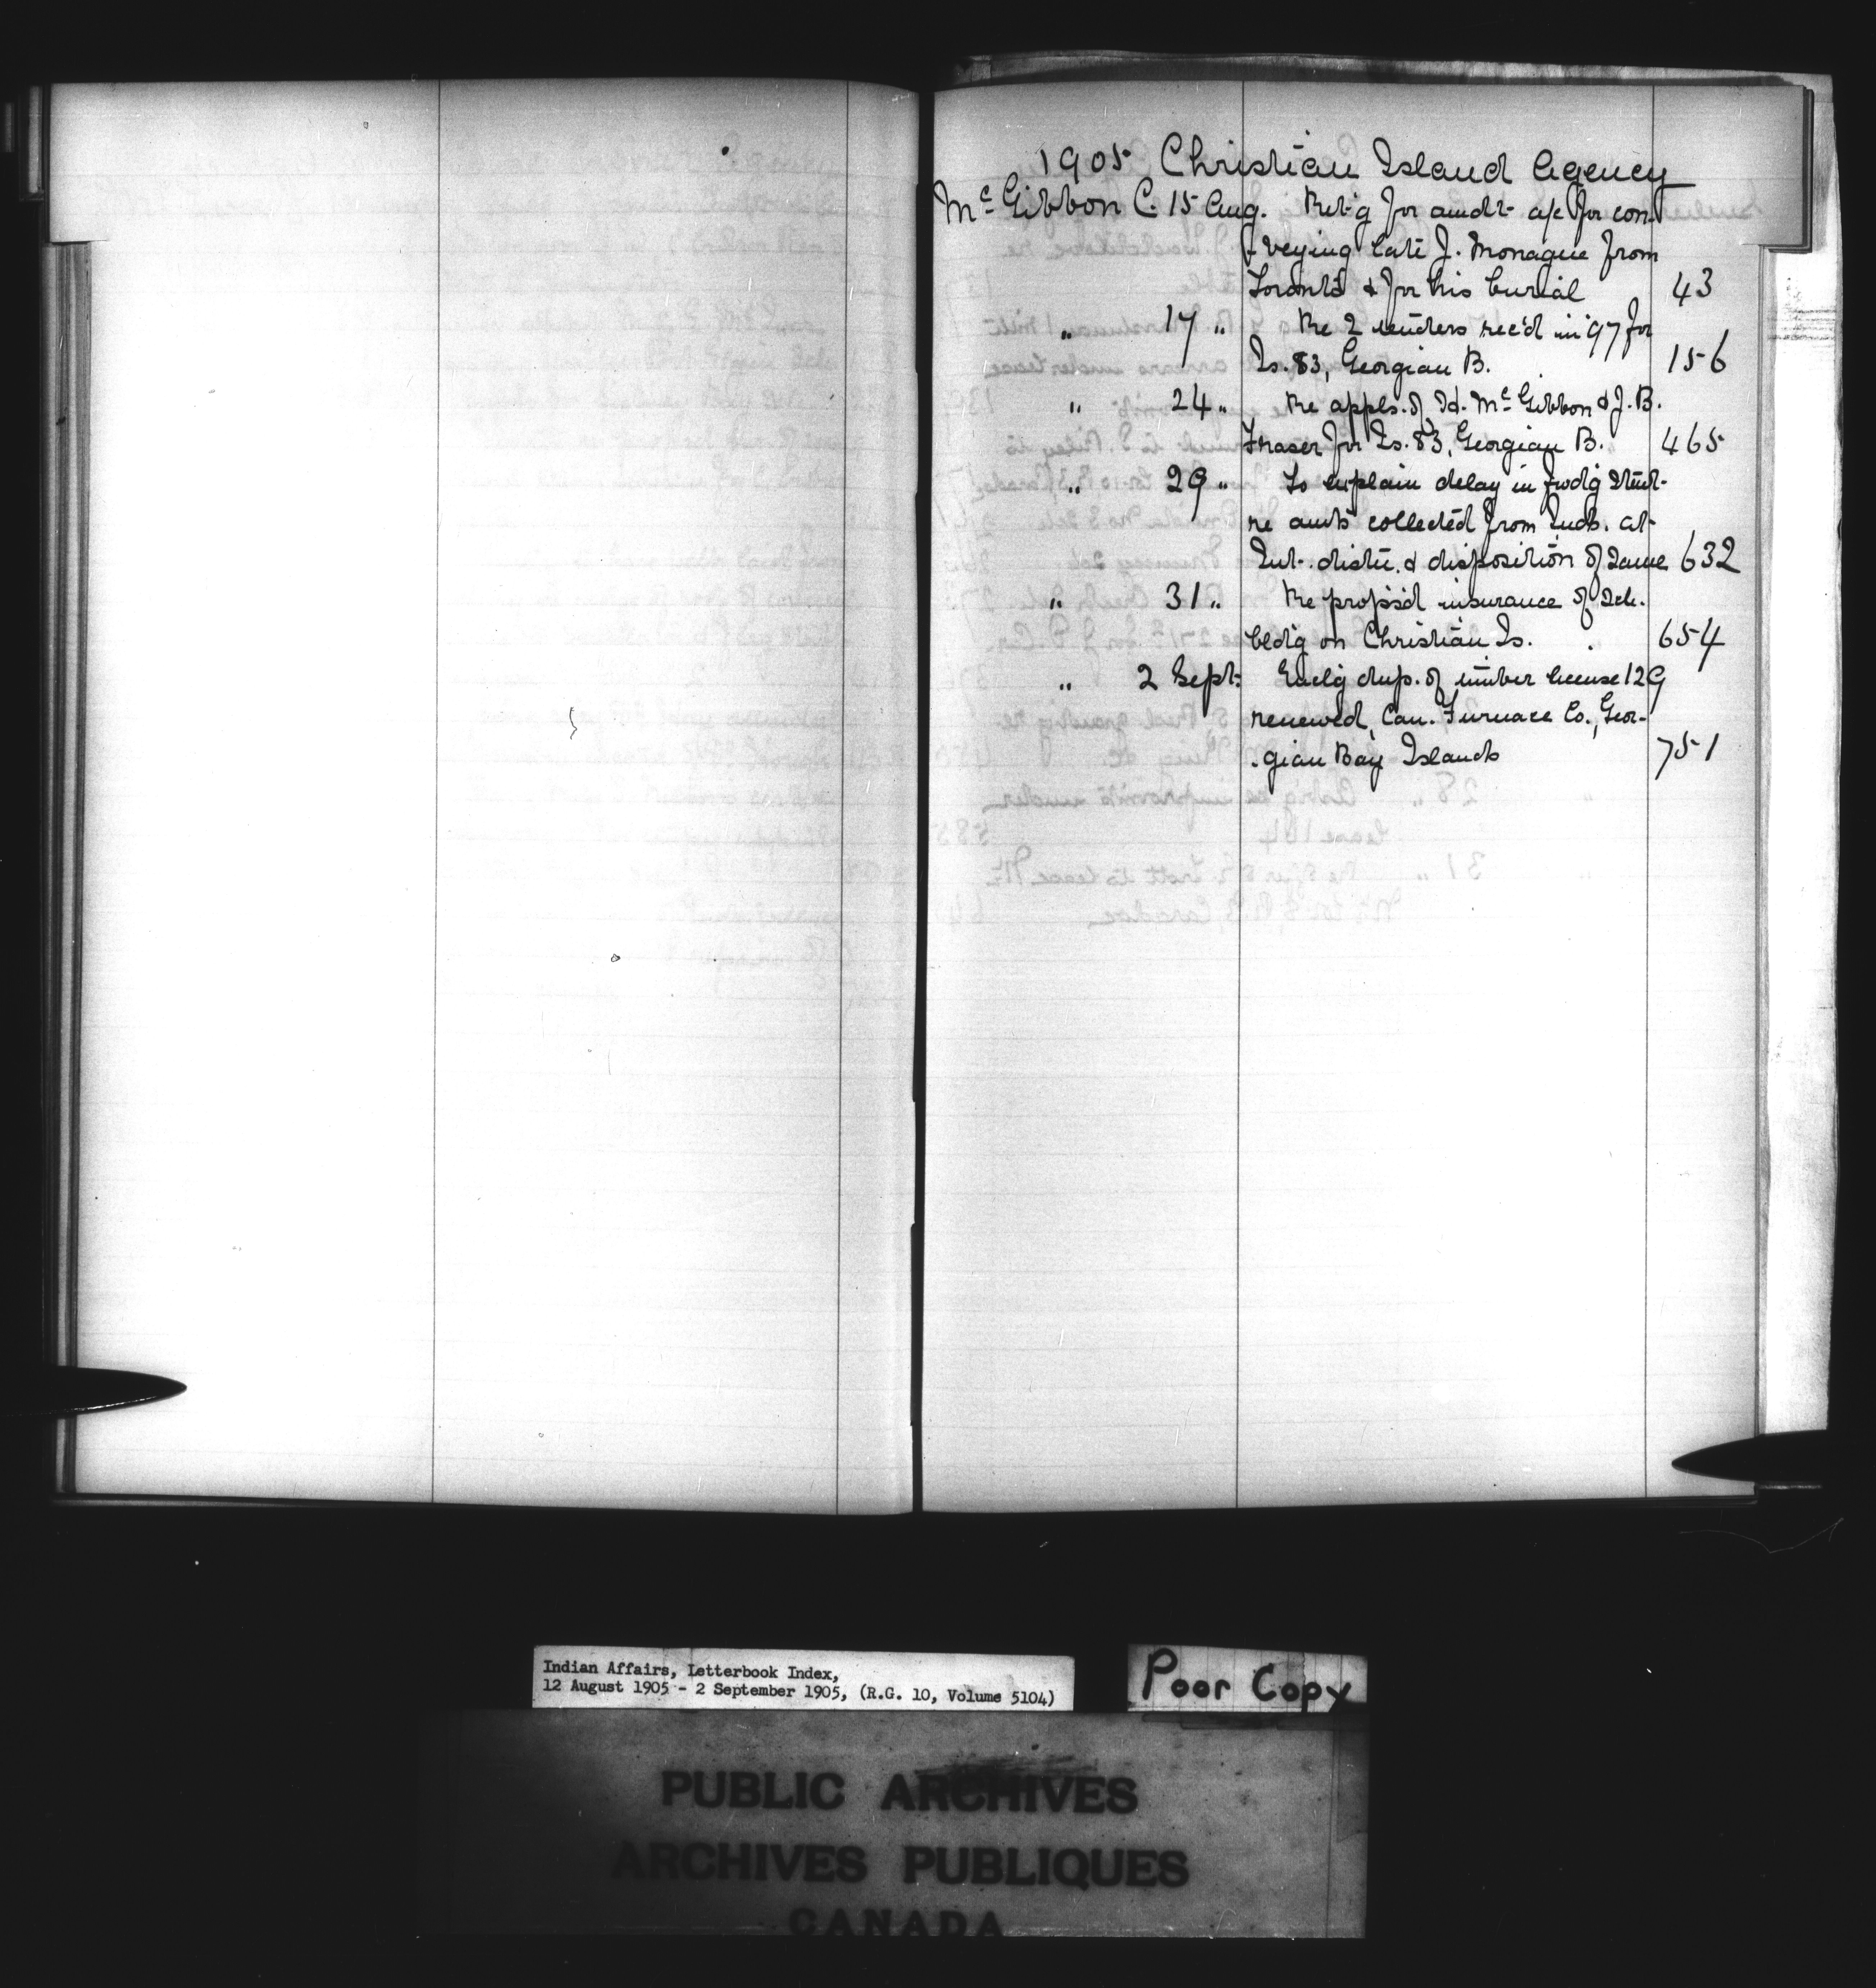 1905 Christian Island Agency
McGibbon C. 15 Aug. Ret'g for amdt a/c for con-
-veying late J. Monague from
Toronto & for his burial 43
" 17 " Re 2 tenders rec'd in '97 for
Is. 83, Georgian B. 156
" 24 " Re appls. of Fd. McGibbon & J. B.
Fraser for Is. 83, Georgian B. 465
" 29 " To explain delay in fwd'g Stmt.
re amts collected from Inds. at
Int. distn. & disposition of same 632
" 31 " Re prop's'd insurance of Sch.
bld'g on Christian Is. 654
" 2 Sept. Encl'g dup. of timber license 129
renewed, Can. Furnace Co., Geor-
-gian Bay Islands 751
Indian Affairs, Letterbook Index,
12 August 1905 - 2 September 1905, (R.G. 10, Volume 5104)
Poor Copy
PUBLIC ARCHIVES
ARCHIVES PUBLIQUES
CANADA